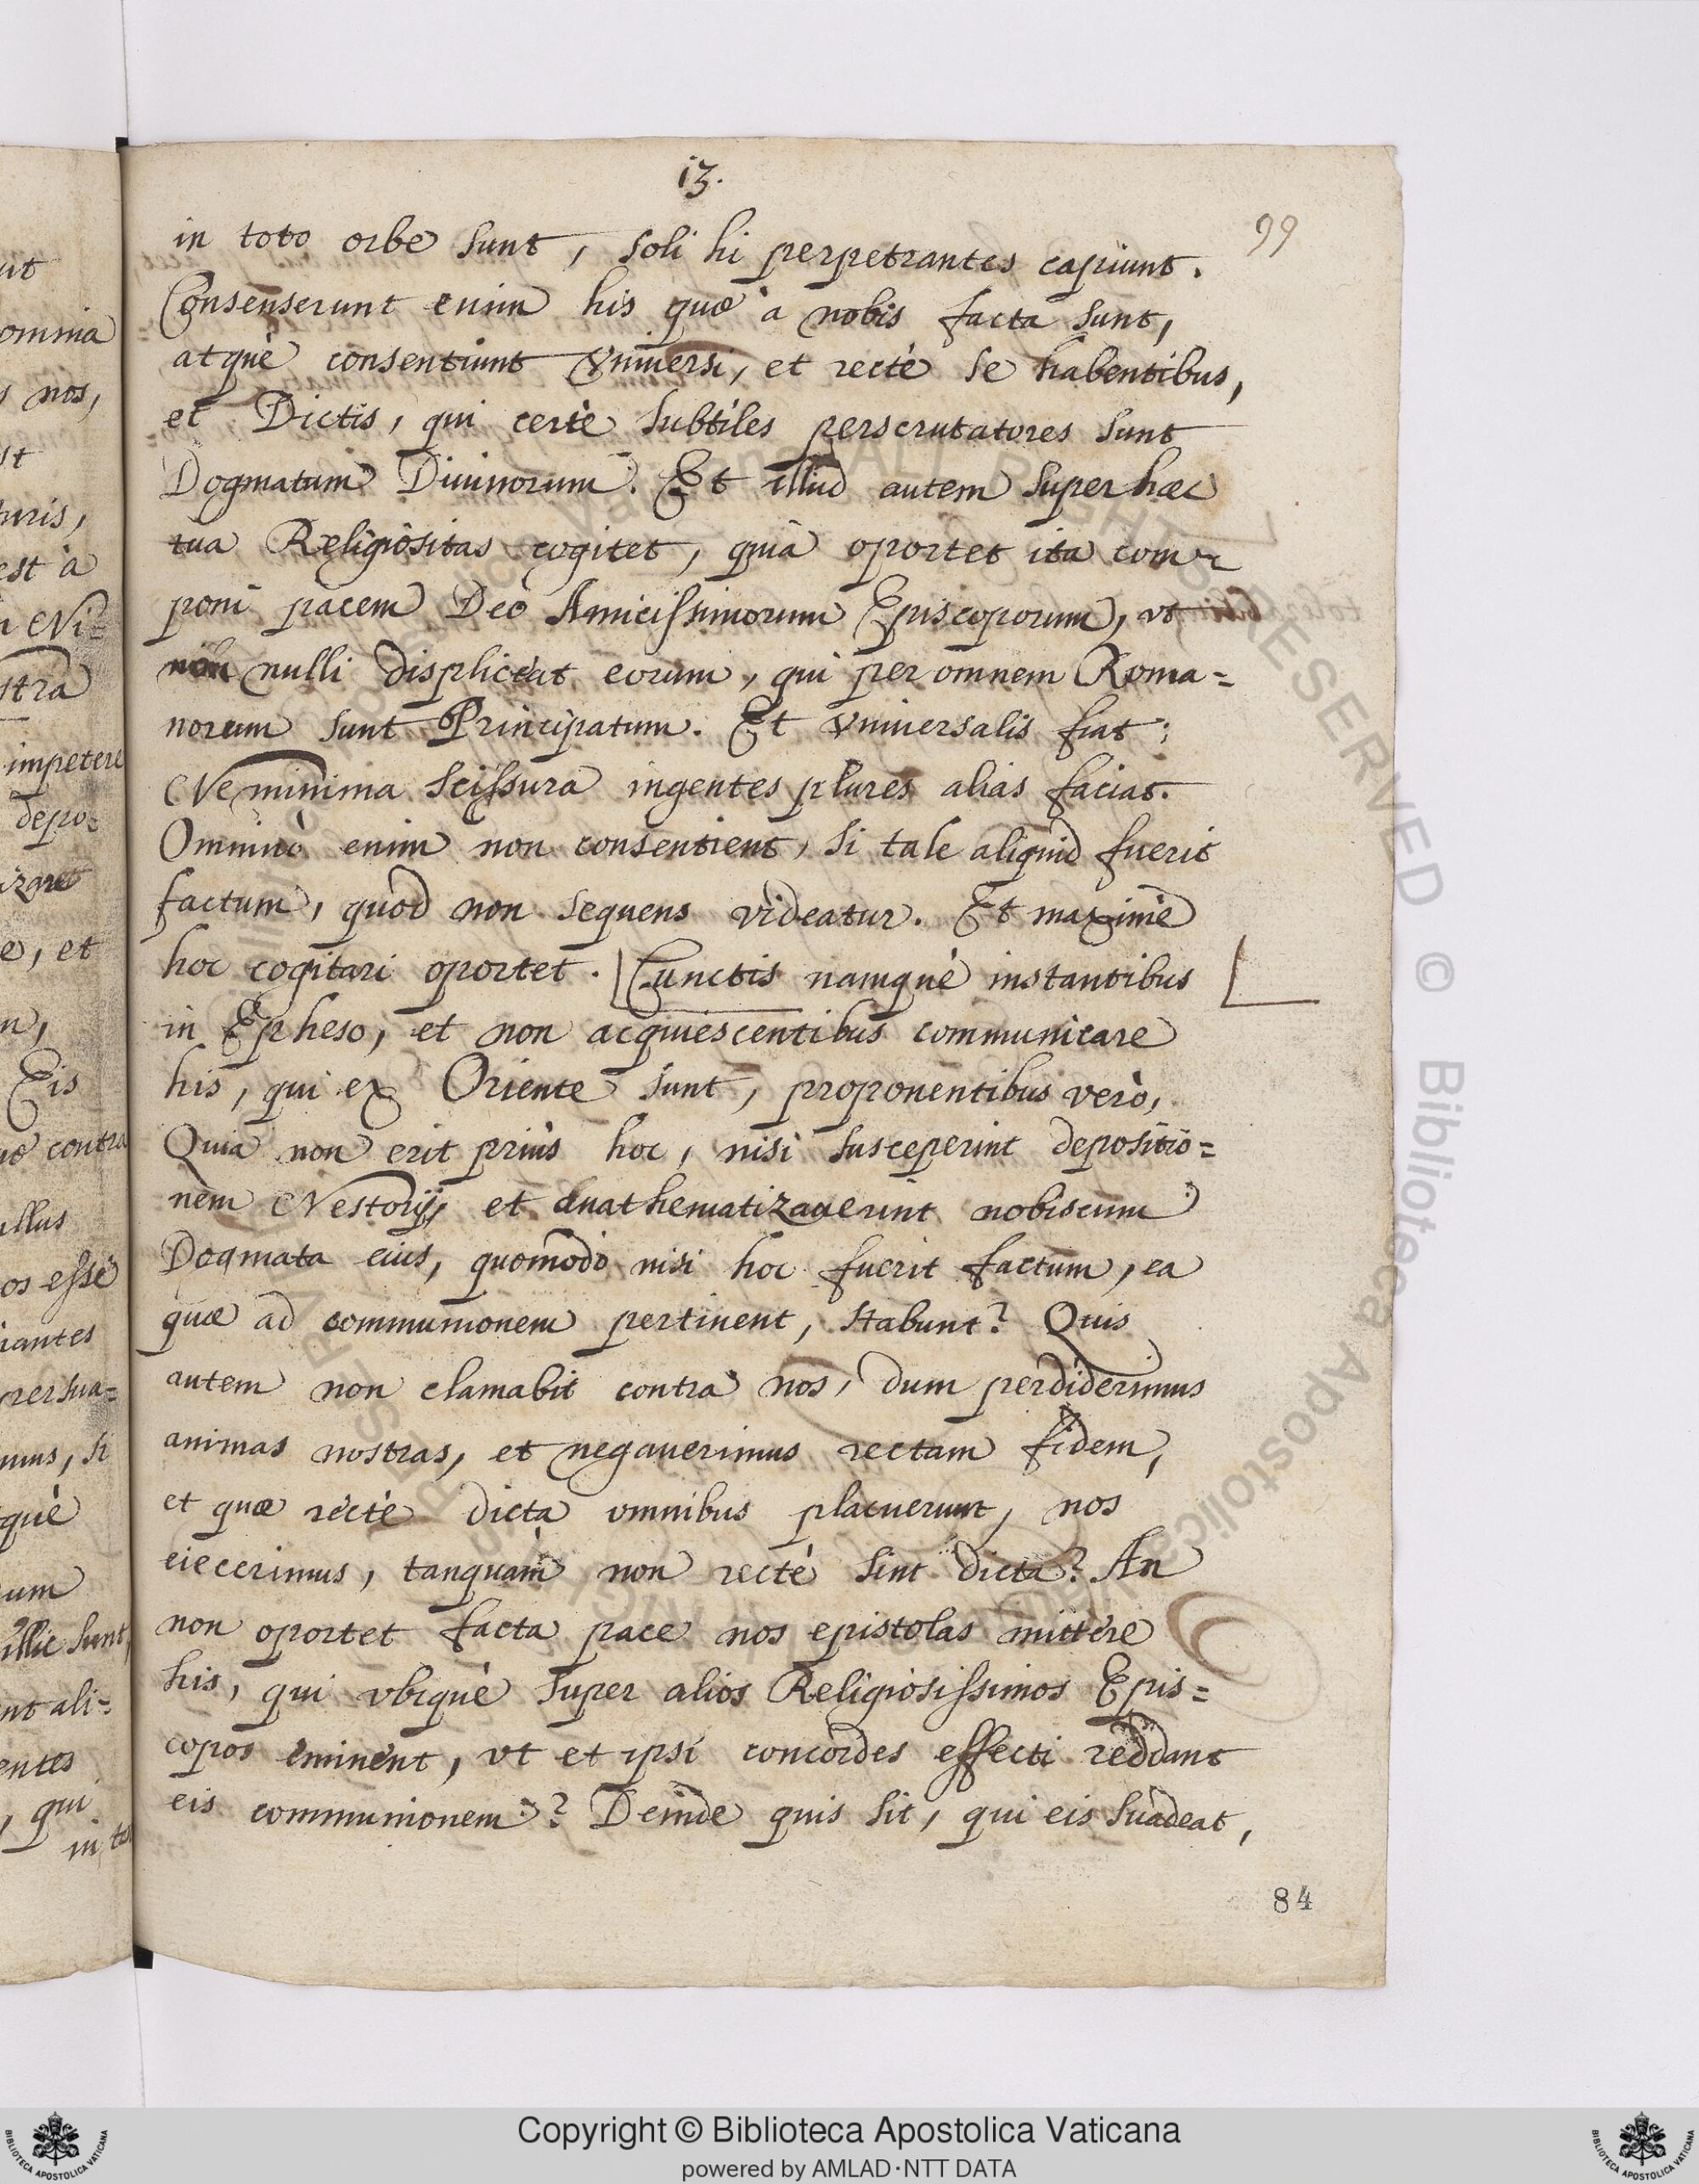 13.
99
in toto orbe sunt, soli hi perpetrantes capiunt.
Consenserunt enim his quæ à nobis facta sunt,
atquè consentiunt Vniuersi, et rectè se habentibus,
et Dictis, qui certè subtiles perscrutatores sunt
Dogmatum Diuinorum. Et illud autem super hæc
tua Religiositas cogitet, quia oportet ita com=
poni pacem Deo Amicissimorum Episcoporum, vt
nulli displiceat eorum, qui per omnem Roma=
norum sunt Principatum. Et vniuersalis fiat;
Ne minima scissura ingentes plures alias faciat.
Omninò enim non consentient, si tale aliquid fuerit
factum, quod non sequens videatur. Et maximè
hoc cogitari oportet. Cunctis namquè instantibus
in Epheso, et non acquiescentibus communicare
his, qui ex Oriente sunt, proponentibus verò,
Quia non erit priùs hoc, nisi susceperint depositio=
nem Nestorij, et anathematizauerint nobiscum
Dogmata eius, quomodo nisi hoc fuerit factum, ea
quæ ad communionem pertinent, stabunt? Quis
autem non clamabit contra nos, dum perdiderimus
animas nostras, et negauerimus rectam fidem,
et quæ rectè dicta omnibus placuerunt, nos
eiecerimus, tanquam non rectè sint dicta? An
non oportet facta pace nos epistolas mittere
his, qui vbiquè super alios Religiosissimos Epis=
copos eminent, vt et ipsi concordes effecti reddant
eis communionem? Deinde quis sit, qui eis suadeat,
84
ut
omnia
s nos,
st
turis,
est à
Ni=
stra
impetere
depo=
e, et
Eis
contra
ullus
os esse
iantes
persua=
mus, si
què
um
illic sunt,
nt ali=
entes
, qui
in to
Copyright © Biblioteca Apostolica Vaticana
powered by AMLAD·NTT DATA